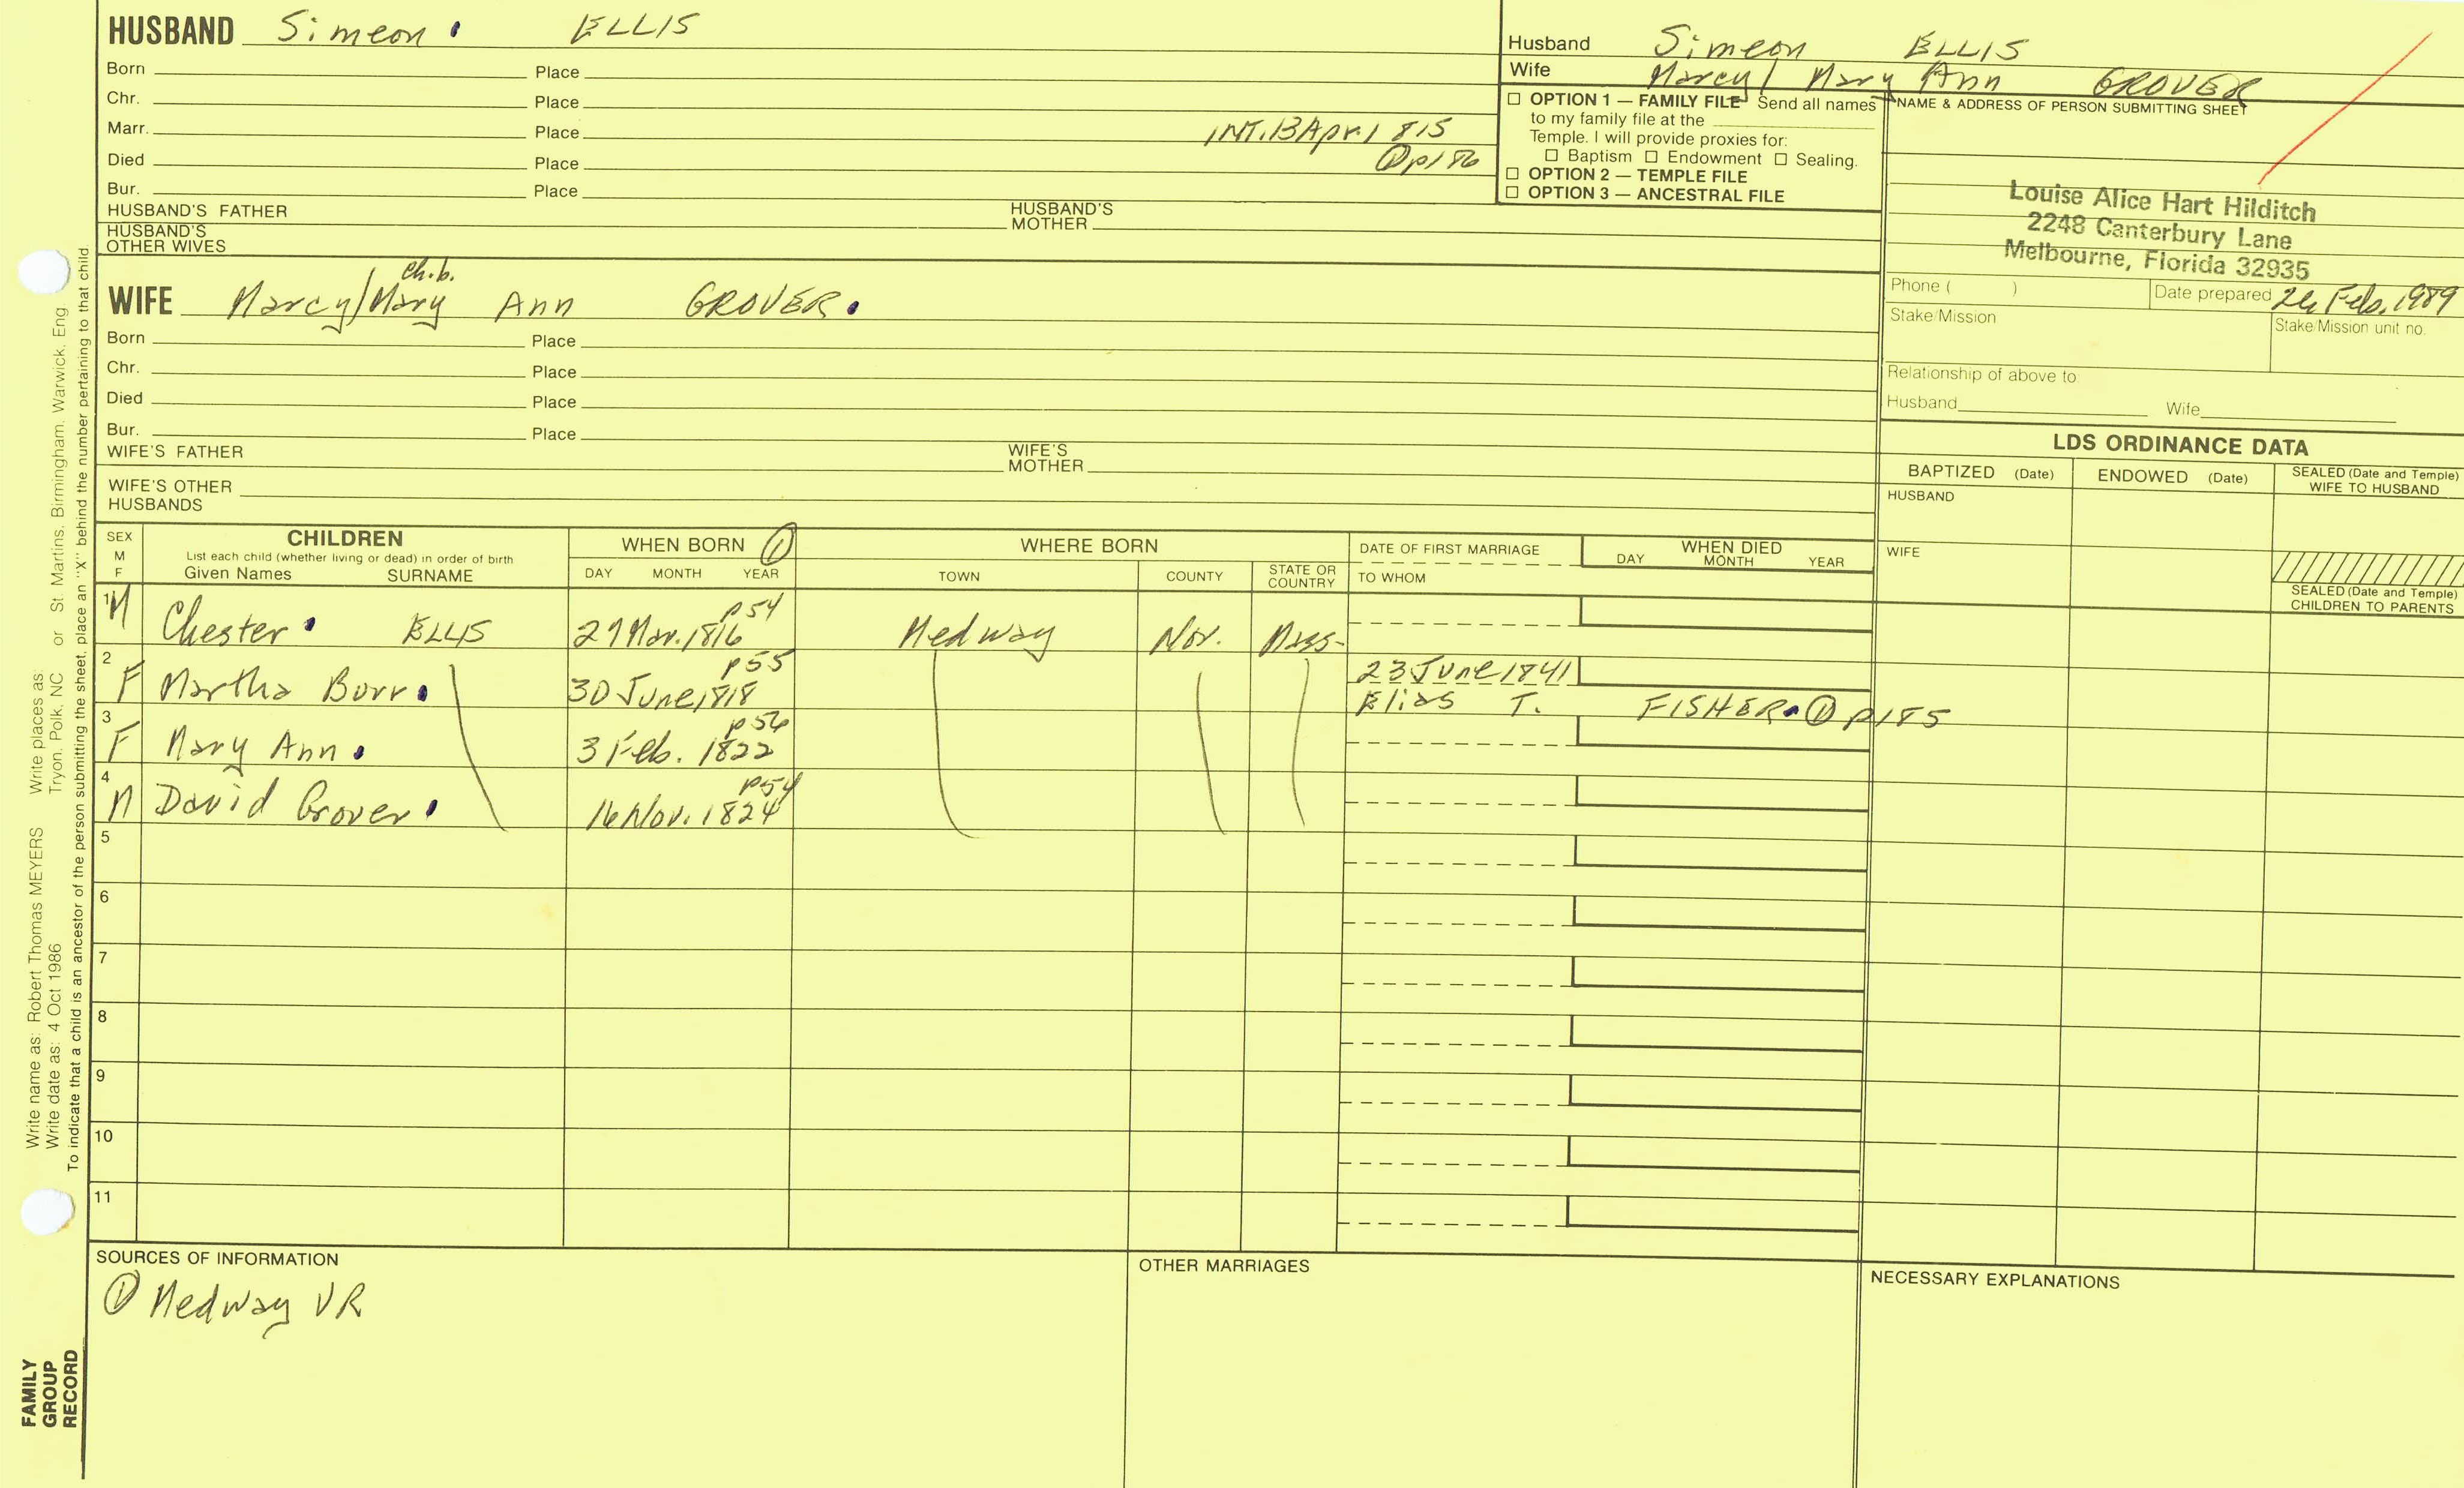 HUSBAND Simeon ELLIS
Born Place
Chr. Place
Marr. Place INT. 13 Apr. 1815
Died Place ① p186
Bur. Place
HUSBAND'S FATHER HUSBAND'S MOTHER
HUSBAND'S OTHER WIVES
Ch.b.
WIFE Marcy/Mary Ann GROVER.
Born Place
Chr. Place
Died Place
Bur. Place
WIFE'S FATHER WIFE'S MOTHER
WIFE'S OTHER HUSBANDS
Husband Simeon ELLIS
Wife Marcy/ Mary Ann GROVER
☐ OPTION 1 — FAMILY FILE Send all names
to my family file at the
Temple. I will provide proxies for:
☐ Baptism ☐ Endowment ☐ Sealing.
☐ OPTION 2 — TEMPLE FILE
☐ OPTION 3 — ANCESTRAL FILE
NAME & ADDRESS OF PERSON SUBMITTING SHEET
Louise Alice Hart Hilditch
2248 Canterbury Lane
Melbourne, Florida 32935
Phone ( ) Date prepared Feb. 1989
Stake/Mission Stake/Mission unit no.
Relationship of above to
Husband Wife
LDS ORDINANCE DATA
BAPTIZED (Date) ENDOWED (Date) SEALED (Date and Temple) WIFE TO HUSBAND
HUSBAND
WIFE
SEALED (Date and Temple) CHILDREN TO PARENTS
SEX M F CHILDREN WHEN BORN ① WHERE BORN DATE OF FIRST MARRIAGE WHEN DIED
List each child (whether living or dead) in order of birth
Given Names SURNAME DAY MONTH YEAR TOWN COUNTY STATE OR COUNTRY TO WHOM DAY MONTH YEAR
1 M Chester ELLIS 27 Mar. 1816 p54 Medway Nor. Mass-
2 F Martha Burr 30 June 1818 p55 23 June 1841
Elias T. FISHER ① p185
3 F Mary Ann 3 Feb. 1822 p56
4 M David Grover 16 Nov. 1824 p54
5
6
7
8
9
10
11
SOURCES OF INFORMATION OTHER MARRIAGES NECESSARY EXPLANATIONS
① Medway VR
Write name as: Robert Thomas MEYERS Write places as: St. Martins, Birmingham, Warwick, Eng
Write date as: 4 Oct 1986 Tryon, Polk, NC or
To indicate that a child is an ancestor of the person submitting the sheet, place an "X" behind the number pertaining to that child.
FAMILY
GROUP
RECORD